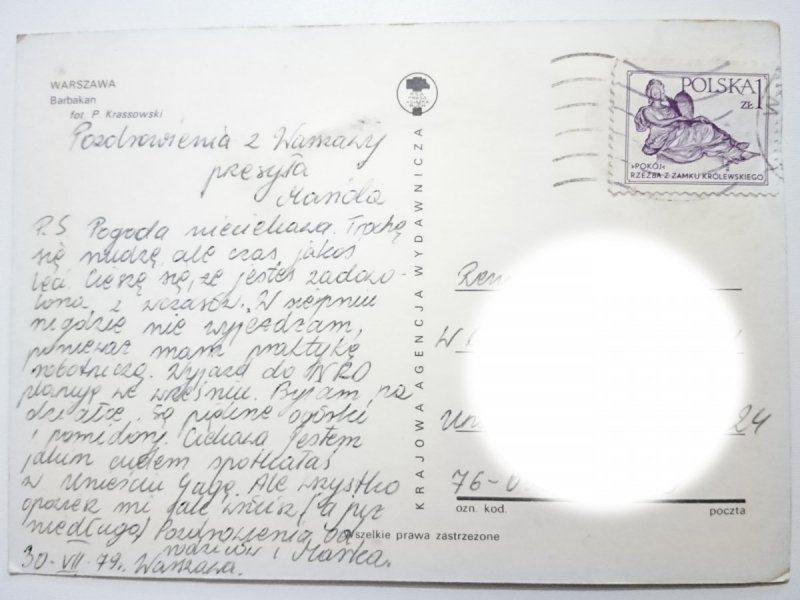 WARSZAWA
Barbakan
fot. P. Krassowski
Pozdrowienia z Warszawy
przesyła
P.S Pogoda nieciekawa. Trochę
się nudzę ale czas jakoś
leci. Cieszę się, że jesteś zadowo-
lona z wczasów. W sierpniu
nigdzie nie wyjeżdżam,
ponieważ mam praktykę
robotniczą. Wyjazd do WRO
planuję we wrześniu. Byłam na
działce, są piękne ogórki
i pomidory. Ciekawa jestem
jakim cudem spotkałaś
w Unieściu Gagę. Ale wszystko
opowiesz mi jak wrócisz (a już
niedługo) Pozdrowienia od
rodziców i Marka.
30-VII-79r. Warszawa.
KRAJOWA AGENCJA WYDAWNICZA
Wszelkie prawa zastrzeżone
POLSKA 1
ZŁ
»POKÓJ«
RZEŹBA Z ZAMKU KRÓLEWSKIEGO
W
24
76-0
ozn. kod. poczta